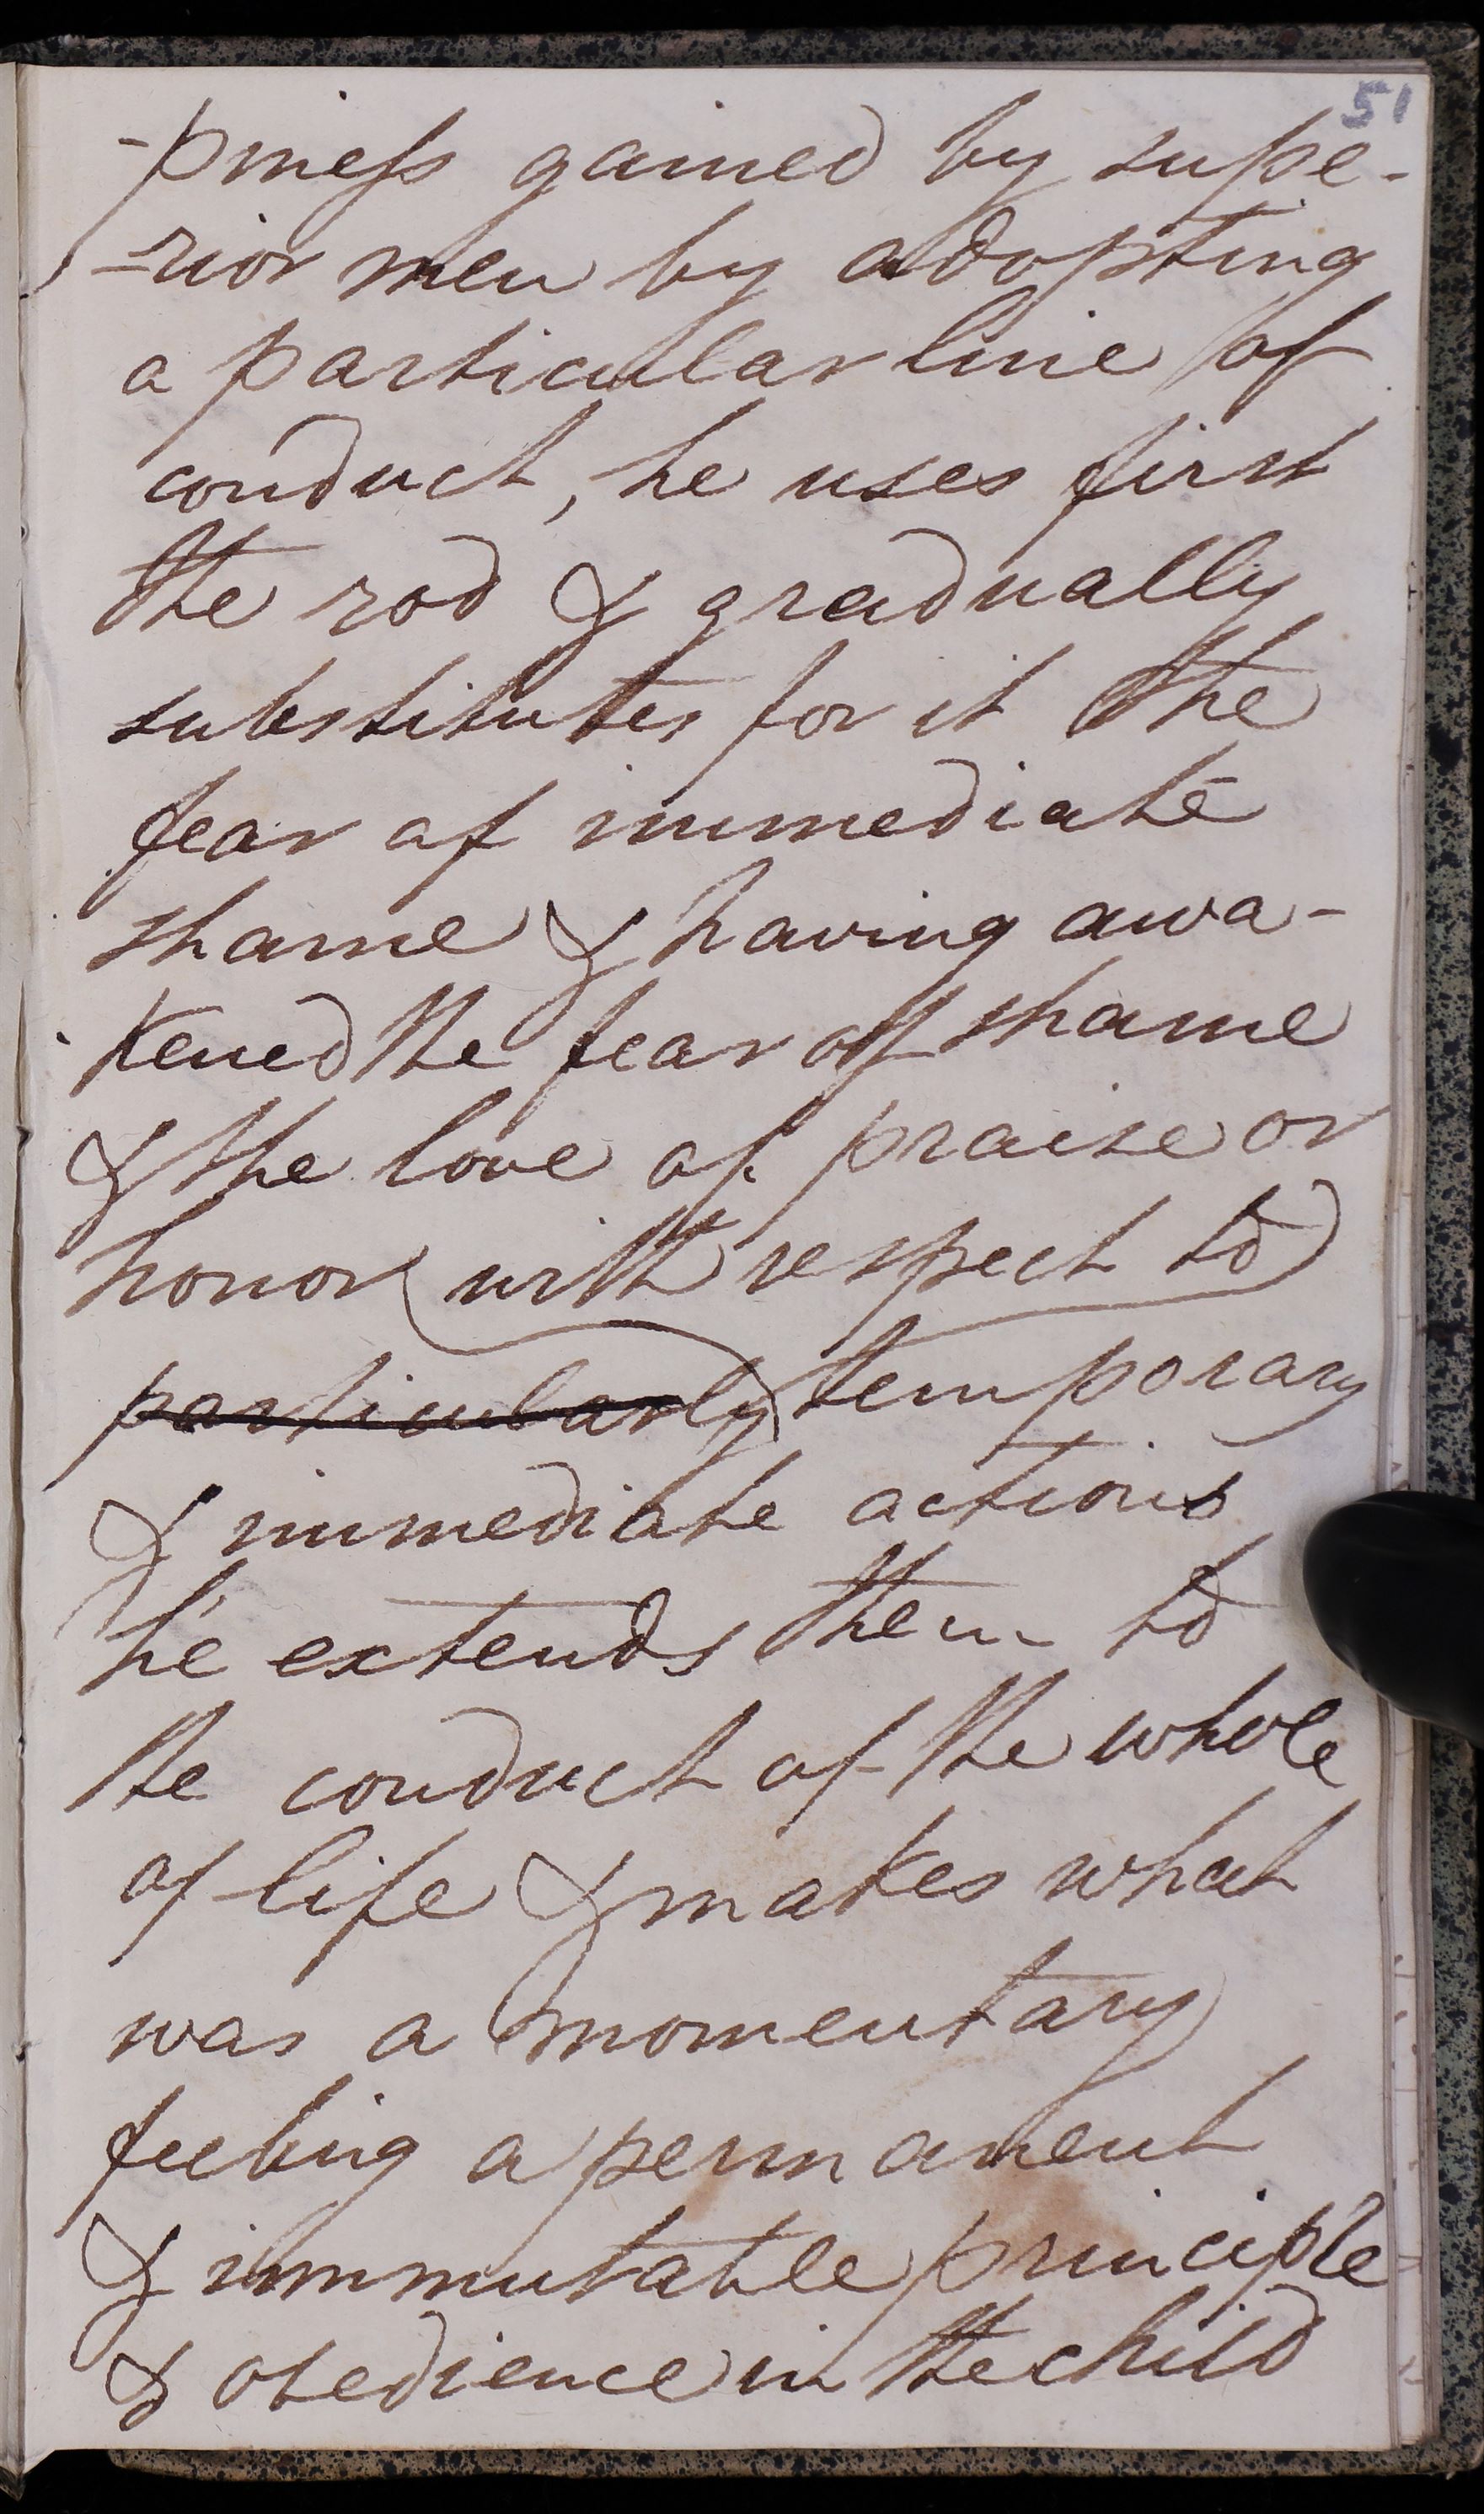 51
-piness gained by supe-
-rior men by adopting
a particular line of
conduct, he uses first
the rod & gradually
substitutes for it the
fear of immediate
shame & having awa-
kened the fear of shame
& the love of praise or
honor with respect to
particularly temporary
& immediate actions
he extends them to
the conduct of the whole
of life & makes what
was a momentary
feeling a permanent
& immutable principle
& obedience in the child